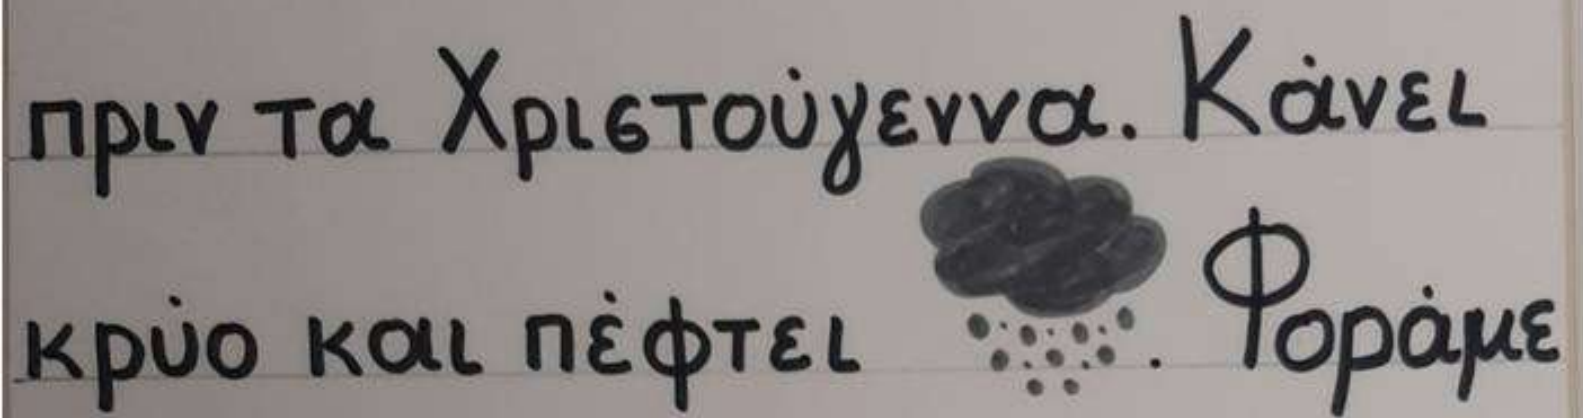 πριν τα Χριστούγεννα. Κάνει
κρύο και πέφτει . Φοράμε